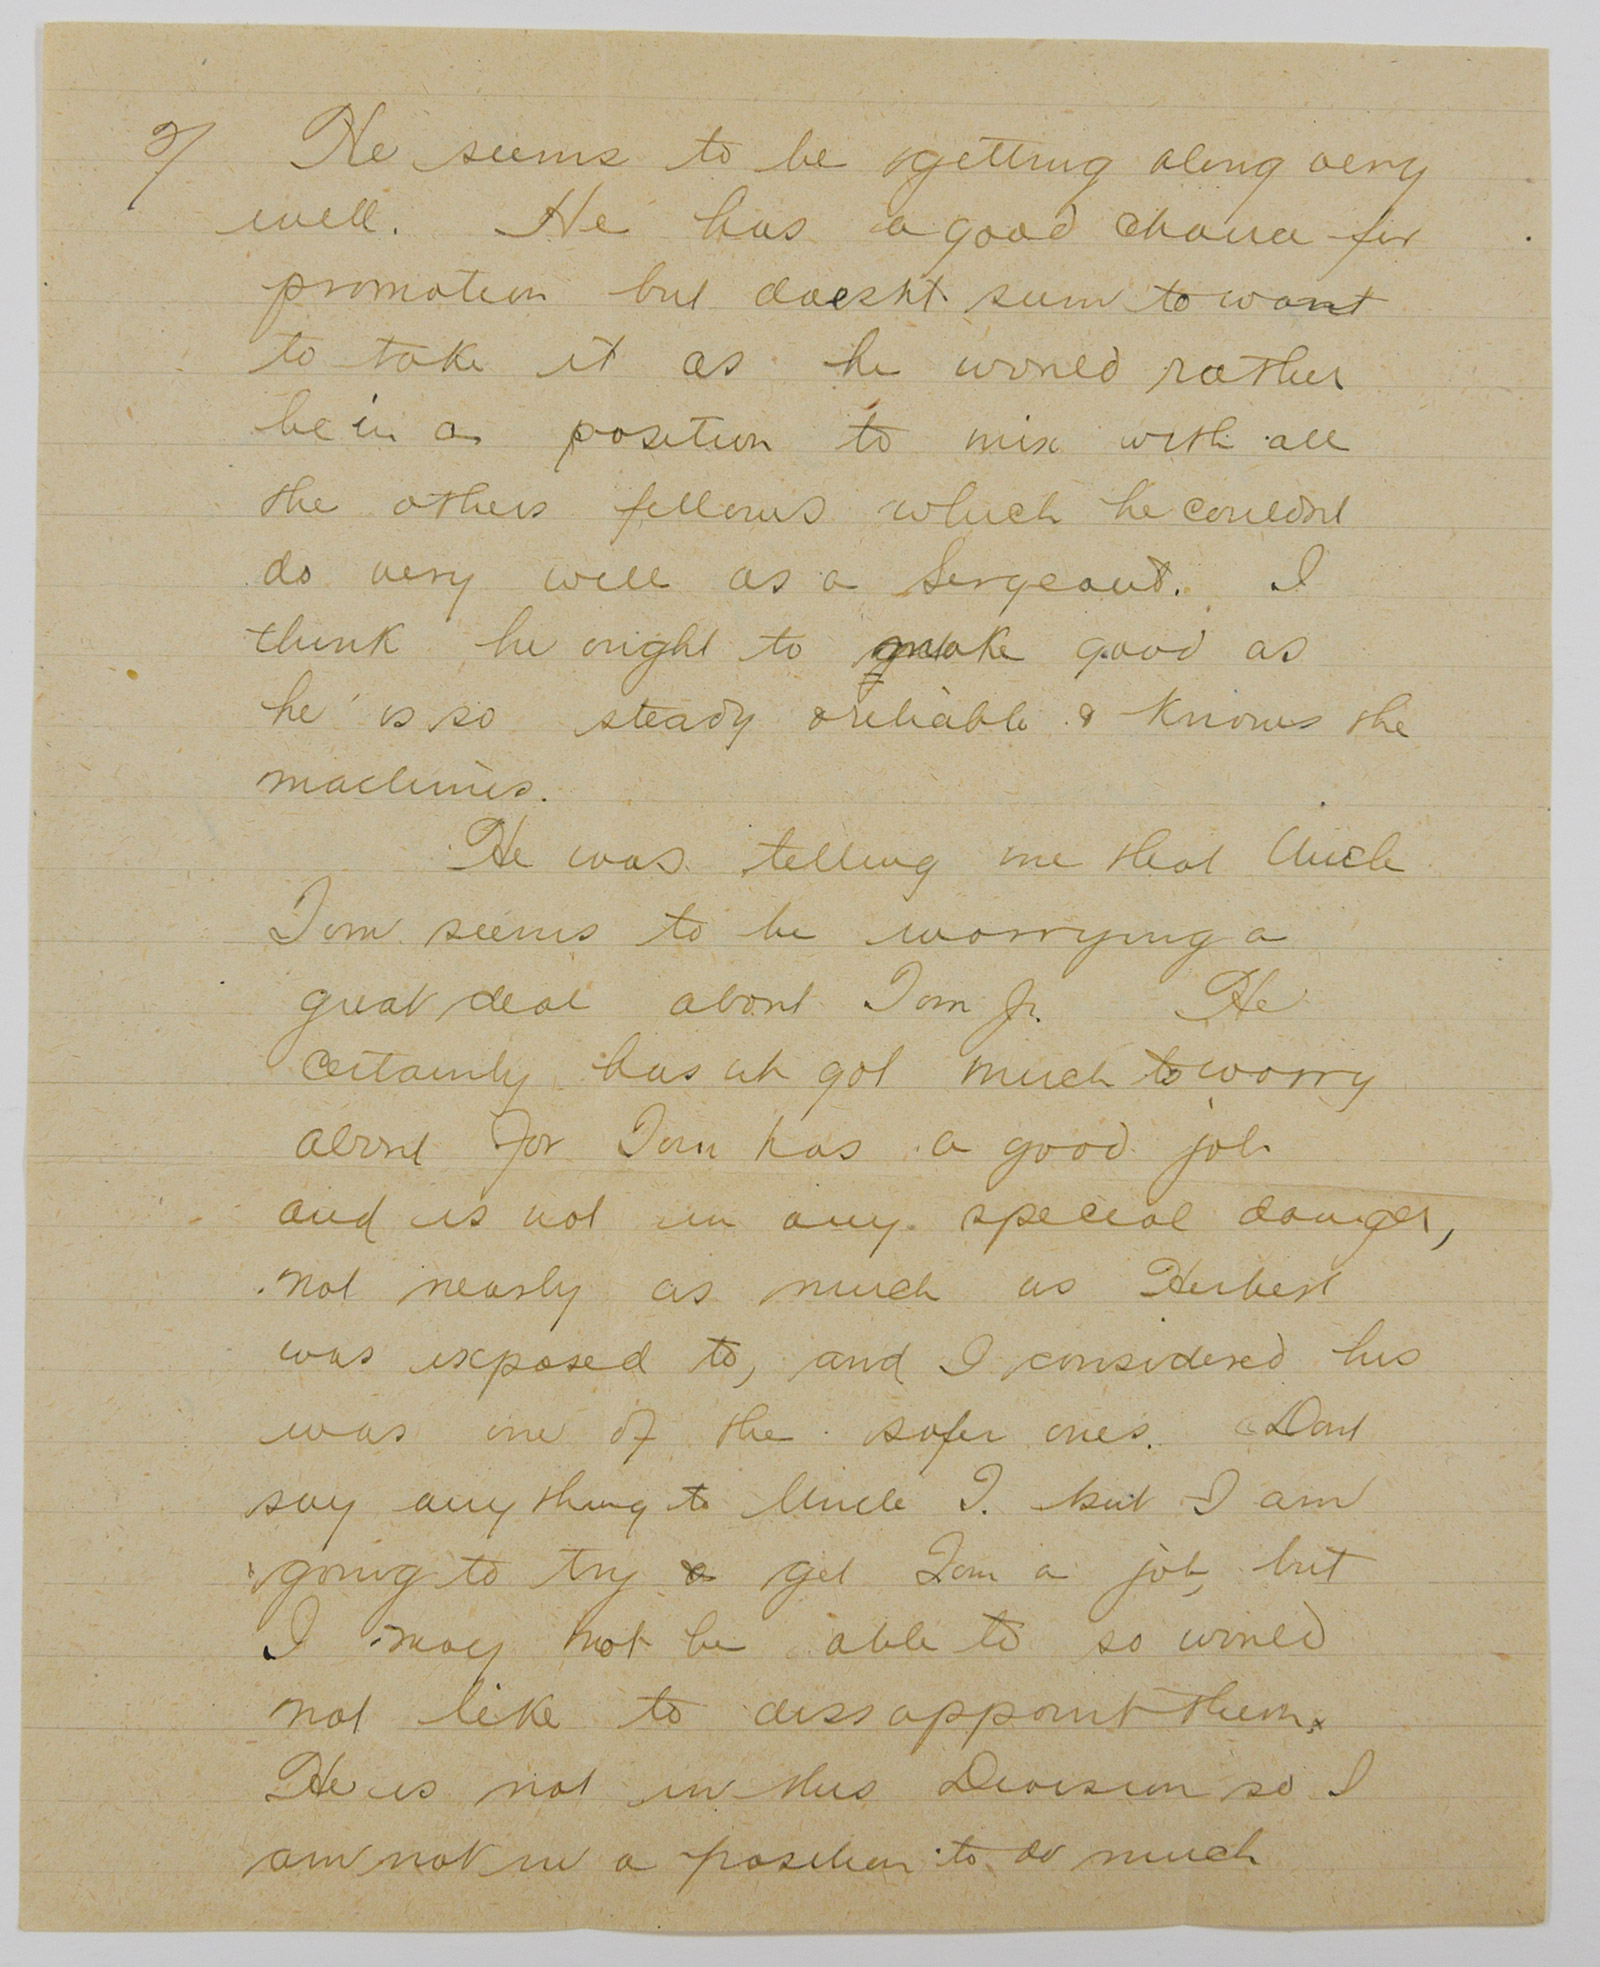 2/ He seems to be getting along very
well. He has a good chance for
promotion but doesn't seem to want
to take it as he would rather
be in a position to mix with all
the others fellows which he couldnt
do very well as a Sergeant. I
think he ought to make good as
he is so steady & reliable & knows the
machines.
He was telling me that Uncle
Tom seems to be worrying a
great deal about Tom Jr. He
certainly hasnt got much to worry
about for Tom has a good job
and is not in any special danger,
not nearly as much as Herbert
was exposed to, and I considered his
was one of the safer ones. Dont
say anything to Uncle T. but I am
going to try & get Tom a job, but
I may not be able to so would
not like to dissappoint them.
He is not in this Division so I
am not in a position to do much